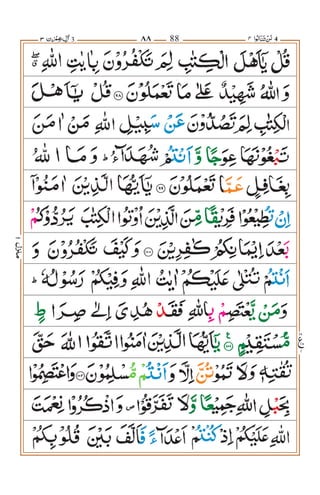 ٣ اٰلِ عِمْرٰن ٣ ٨٨ 88 لَنْ تَنَالُوا ٤ 4
قُلْ يٰۤاَهْلَ الْكِتٰبِ لِمَ تَكْفُرُوْنَ بِاٰيٰتِ اللّٰهِ ۖۗ
وَ اللّٰهُ شَهِيْدٌ عَلٰى مَا تَعْمَلُوْنَ ﴿۹۸﴾ قُلْ يٰۤاَهْلَ
الْكِتٰبِ لِمَ تَصُدُّوْنَ عَنْ سَبِيْلِ اللّٰهِ مَنْ اٰمَنَ
تَبْغُوْنَهَا عِوَجًا وَّ اَنْتُمْ شُهَدَآءُ ؕ وَ مَا اللّٰهُ
بِغَافِلٍ عَمَّا تَعْمَلُوْنَ ﴿۹۹﴾ يٰۤاَيُّهَا الَّذِيْنَ اٰمَنُوْۤا
اِنْ تُطِيْعُوْا فَرِيْقًا مِّنَ الَّذِيْنَ اُوْتُوا الْكِتٰبَ يَرُدُّوْكُمْ
بَعْدَ اِيْمَانِكُمْ كٰفِرِيْنَ ﴿۱۰۰﴾ وَكَيْفَ تَكْفُرُوْنَ وَ
اَنْتُمْ تُتْلٰى عَلَيْكُمْ اٰيٰتُ اللّٰهِ وَفِيْكُمْ رَسُوْلُهٗ ؕ
وَمَنْ يَّعْتَصِمْ بِاللّٰهِ فَقَدْ هُدِىَ اِلٰى صِرَاطٍ
مُّسْتَقِيْمٍ ﴿۱۰۱﴾ يٰۤاَيُّهَا الَّذِيْنَ اٰمَنُوا اتَّقُوا اللّٰهَ حَقَّ
تُقٰتِهٖ وَلَا تَمُوْتُنَّ اِلَّا وَاَنْتُمْ مُّسْلِمُوْنَ ﴿۱۰۲﴾ وَاعْتَصِمُوْا
بِحَبْلِ اللّٰهِ جَمِيْعًا وَّلَا تَفَرَّقُوْا ۪ وَاذْكُرُوْا نِعْمَتَ
اللّٰهِ عَلَيْكُمْ اِذْ كُنْتُمْ اَعْدَآءً فَاَلَّفَ بَيْنَ قُلُوْبِكُمْ